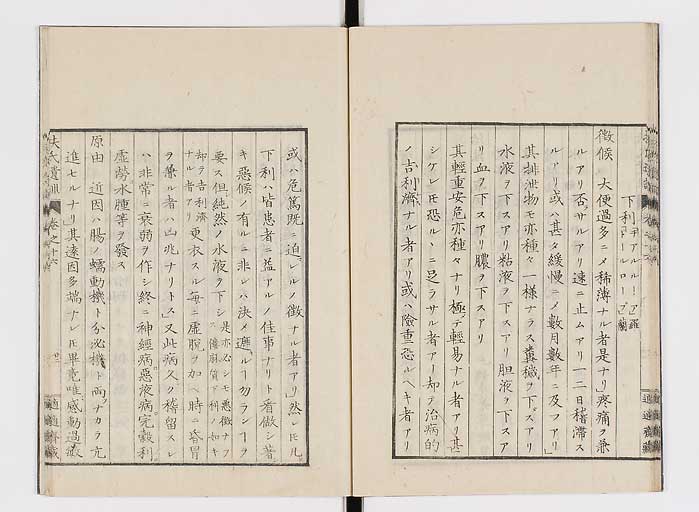 下利「ヂアルルーア」羅「ドールローープ」蘭
徴候　大便過多ニㇾ稀薄ナル者是ナリ」疼痛ヲ兼
ルアリ否サルアリ速ニ止ムアリ一二日稽滞ス
ルアリ或ハ甚タ緩慢ニㇾ數月數年ニ及フアリ」
其排泄物モ亦種々一様ナラス糞穢ヲ下スアリ
水液ヲ下スアリ粘液ヲ下スアリ胆液ヲ下スア
リ血ヲ下スアリ膿ヲ下スアリ
其輕重安危亦種々ナリ極テ輕易ナル者アリ甚
シケレ𪜈恐ルヽニ足ラサル者アリ却テ治病的
ノ吉利濟ナル者アリ或ハ險重恐ルヘキ者アリ
或ハ危篤既ニ迫レルノ徴ナル者アリ」然レ𪜈凡
下利ハ皆患者ニ益アルノ佳事ナリト看做シ著
キ惡候ノ有ルニ非レハ決メ遮ルー勿ランーヲ
要ス但純然ノ水液ヲ下シ是亦必シモ惡徴ナラス僂麻質下利ノ如キ
却テ吉利濟ナル者アリ更衣スル毎ニ虚脱ヲ加ヘ時ニ昏冒
ヲ兼ル者ハ凶兆ナリトス」又此病久ク稽留スレ
ハ非常ニ衰弱ヲ作シ終ニ神經病惡液病完穀利
虚勞水腫等ヲ發ス
原由　近因ハ腸ノ蠕動機ト分泌機ト両ナカラ亢
進セルナリ」其遠因多端ナレ𪜈畢竟唯感動過敏
扶氏遺訓　卷之十六